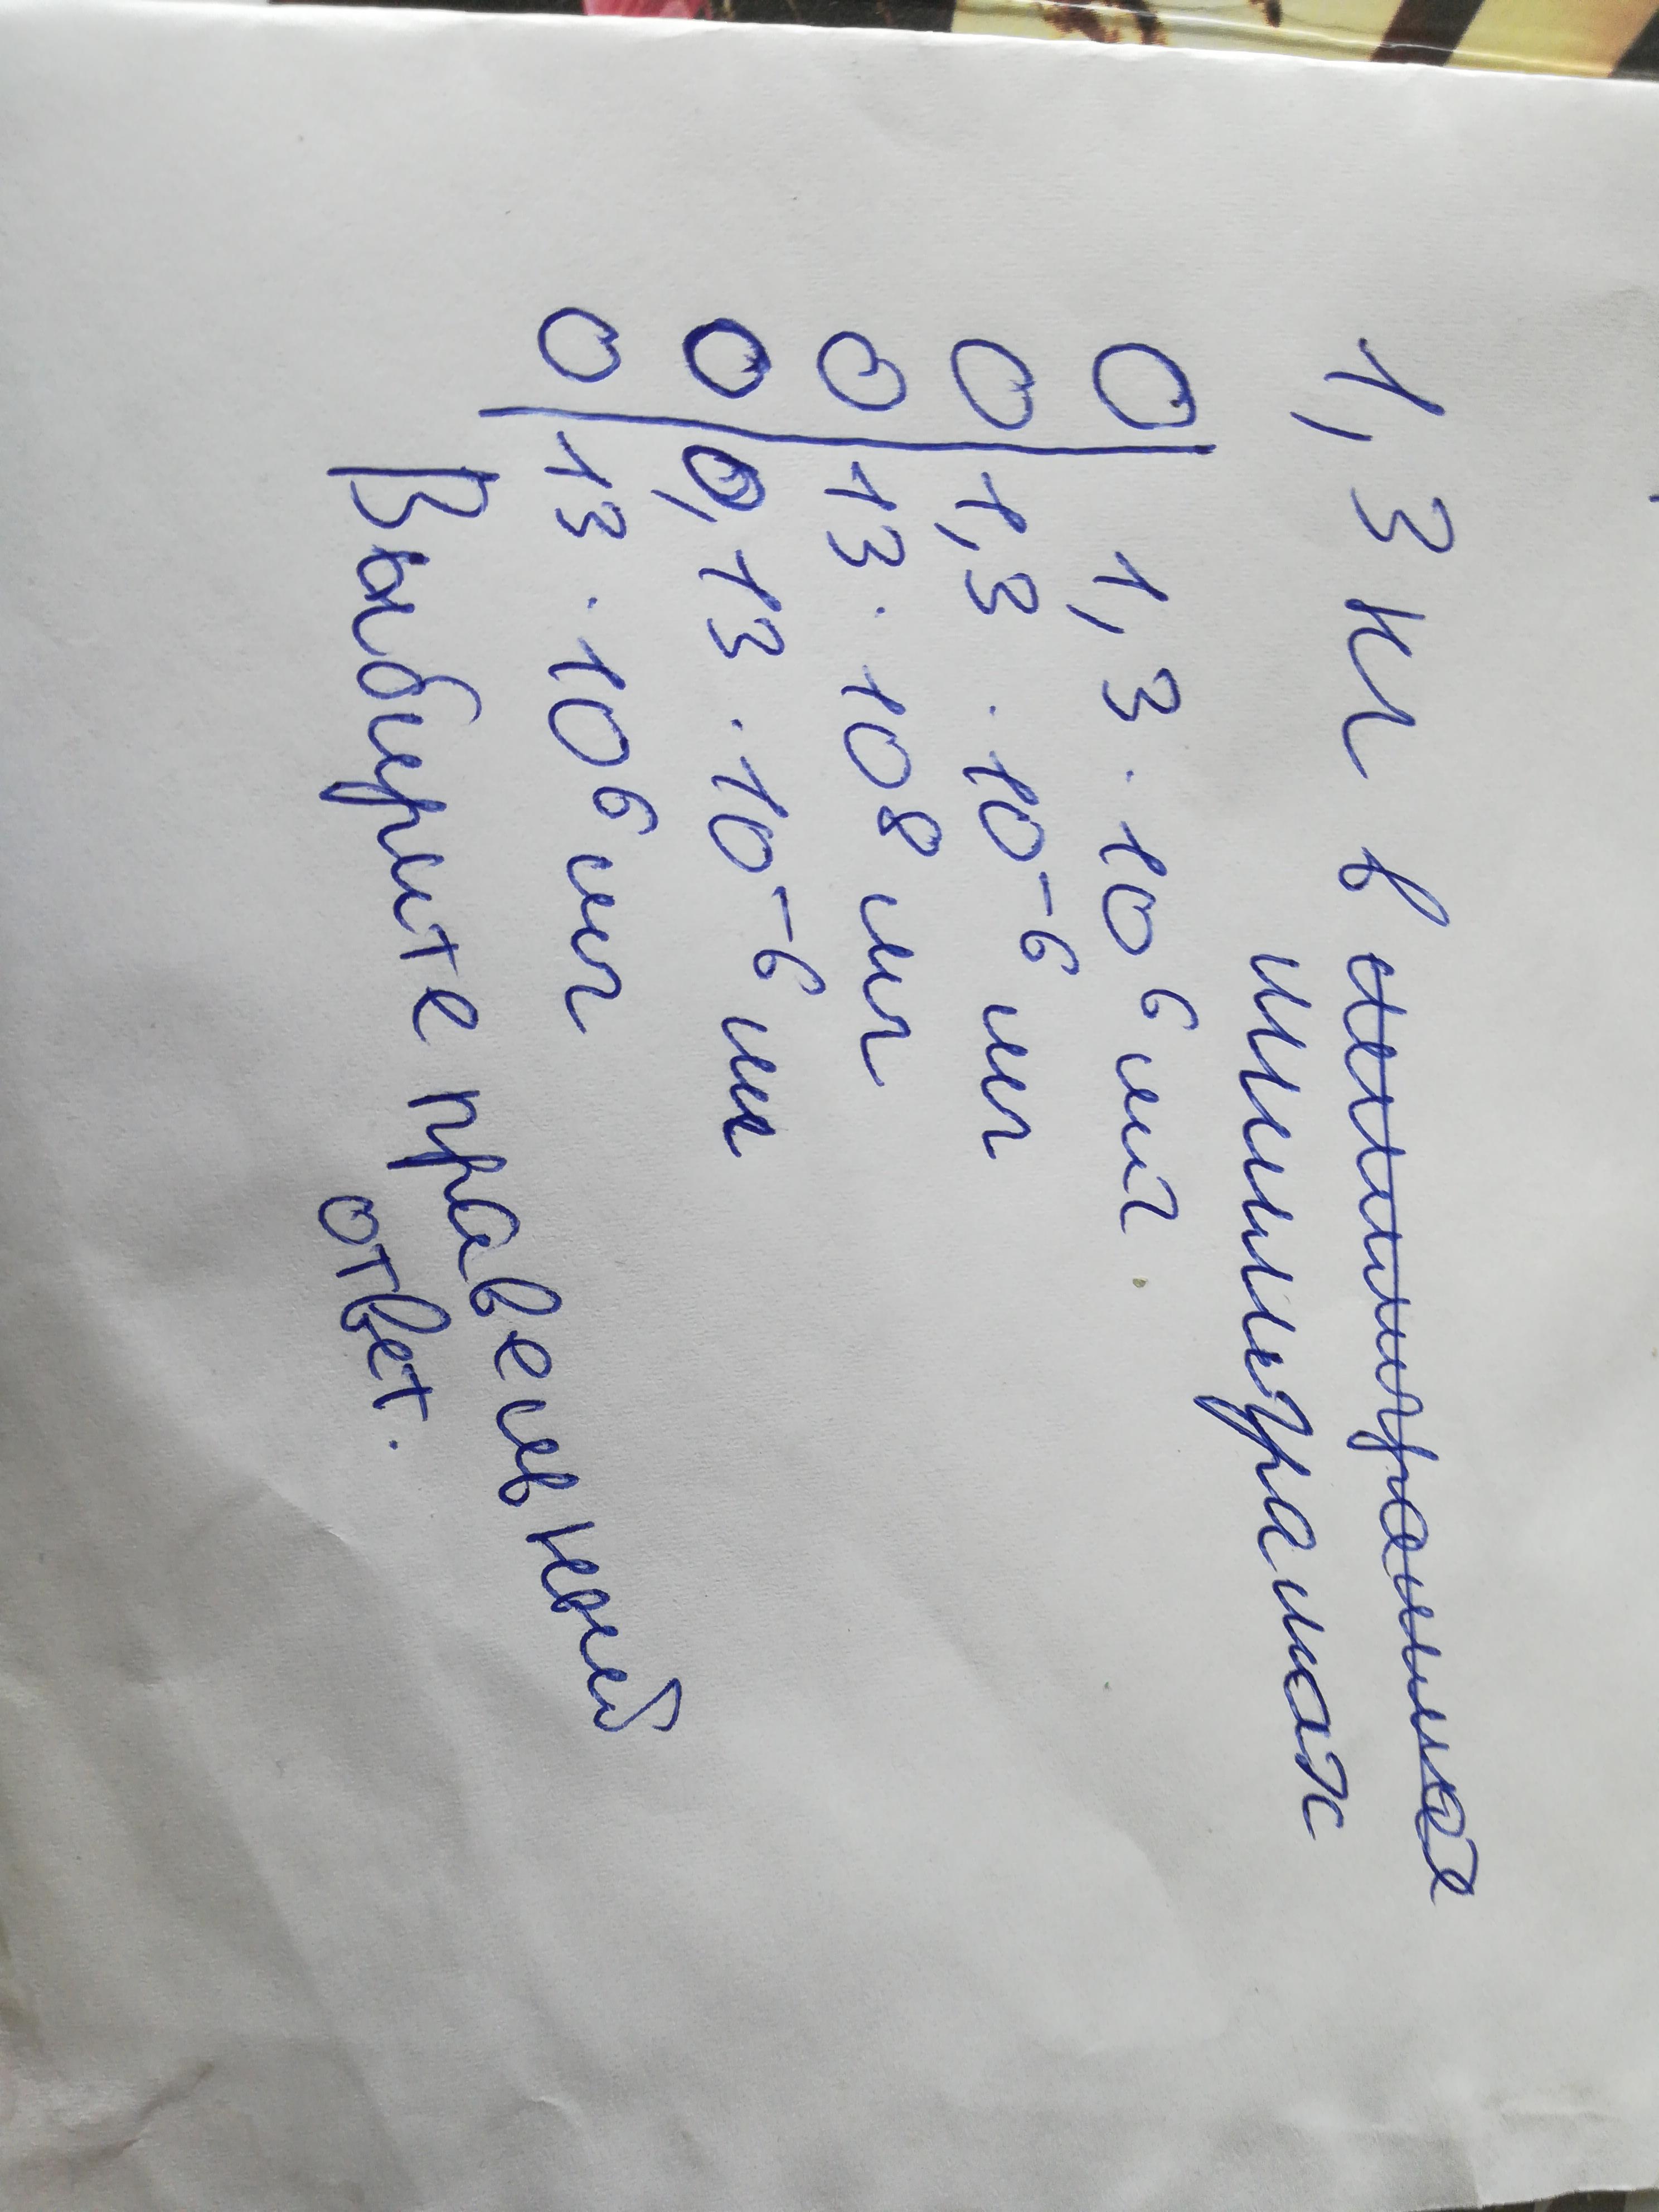 1,3 кг в миллиграммах
миллиграммах
О 1,3 · 10⁶ мг
О 1,3 · 10⁻⁶ мг
О 13 · 10⁸ мг
О 0,13 · 10⁻⁶ мг
О 13 · 10⁶ мг
Выберите правельный
ответ.